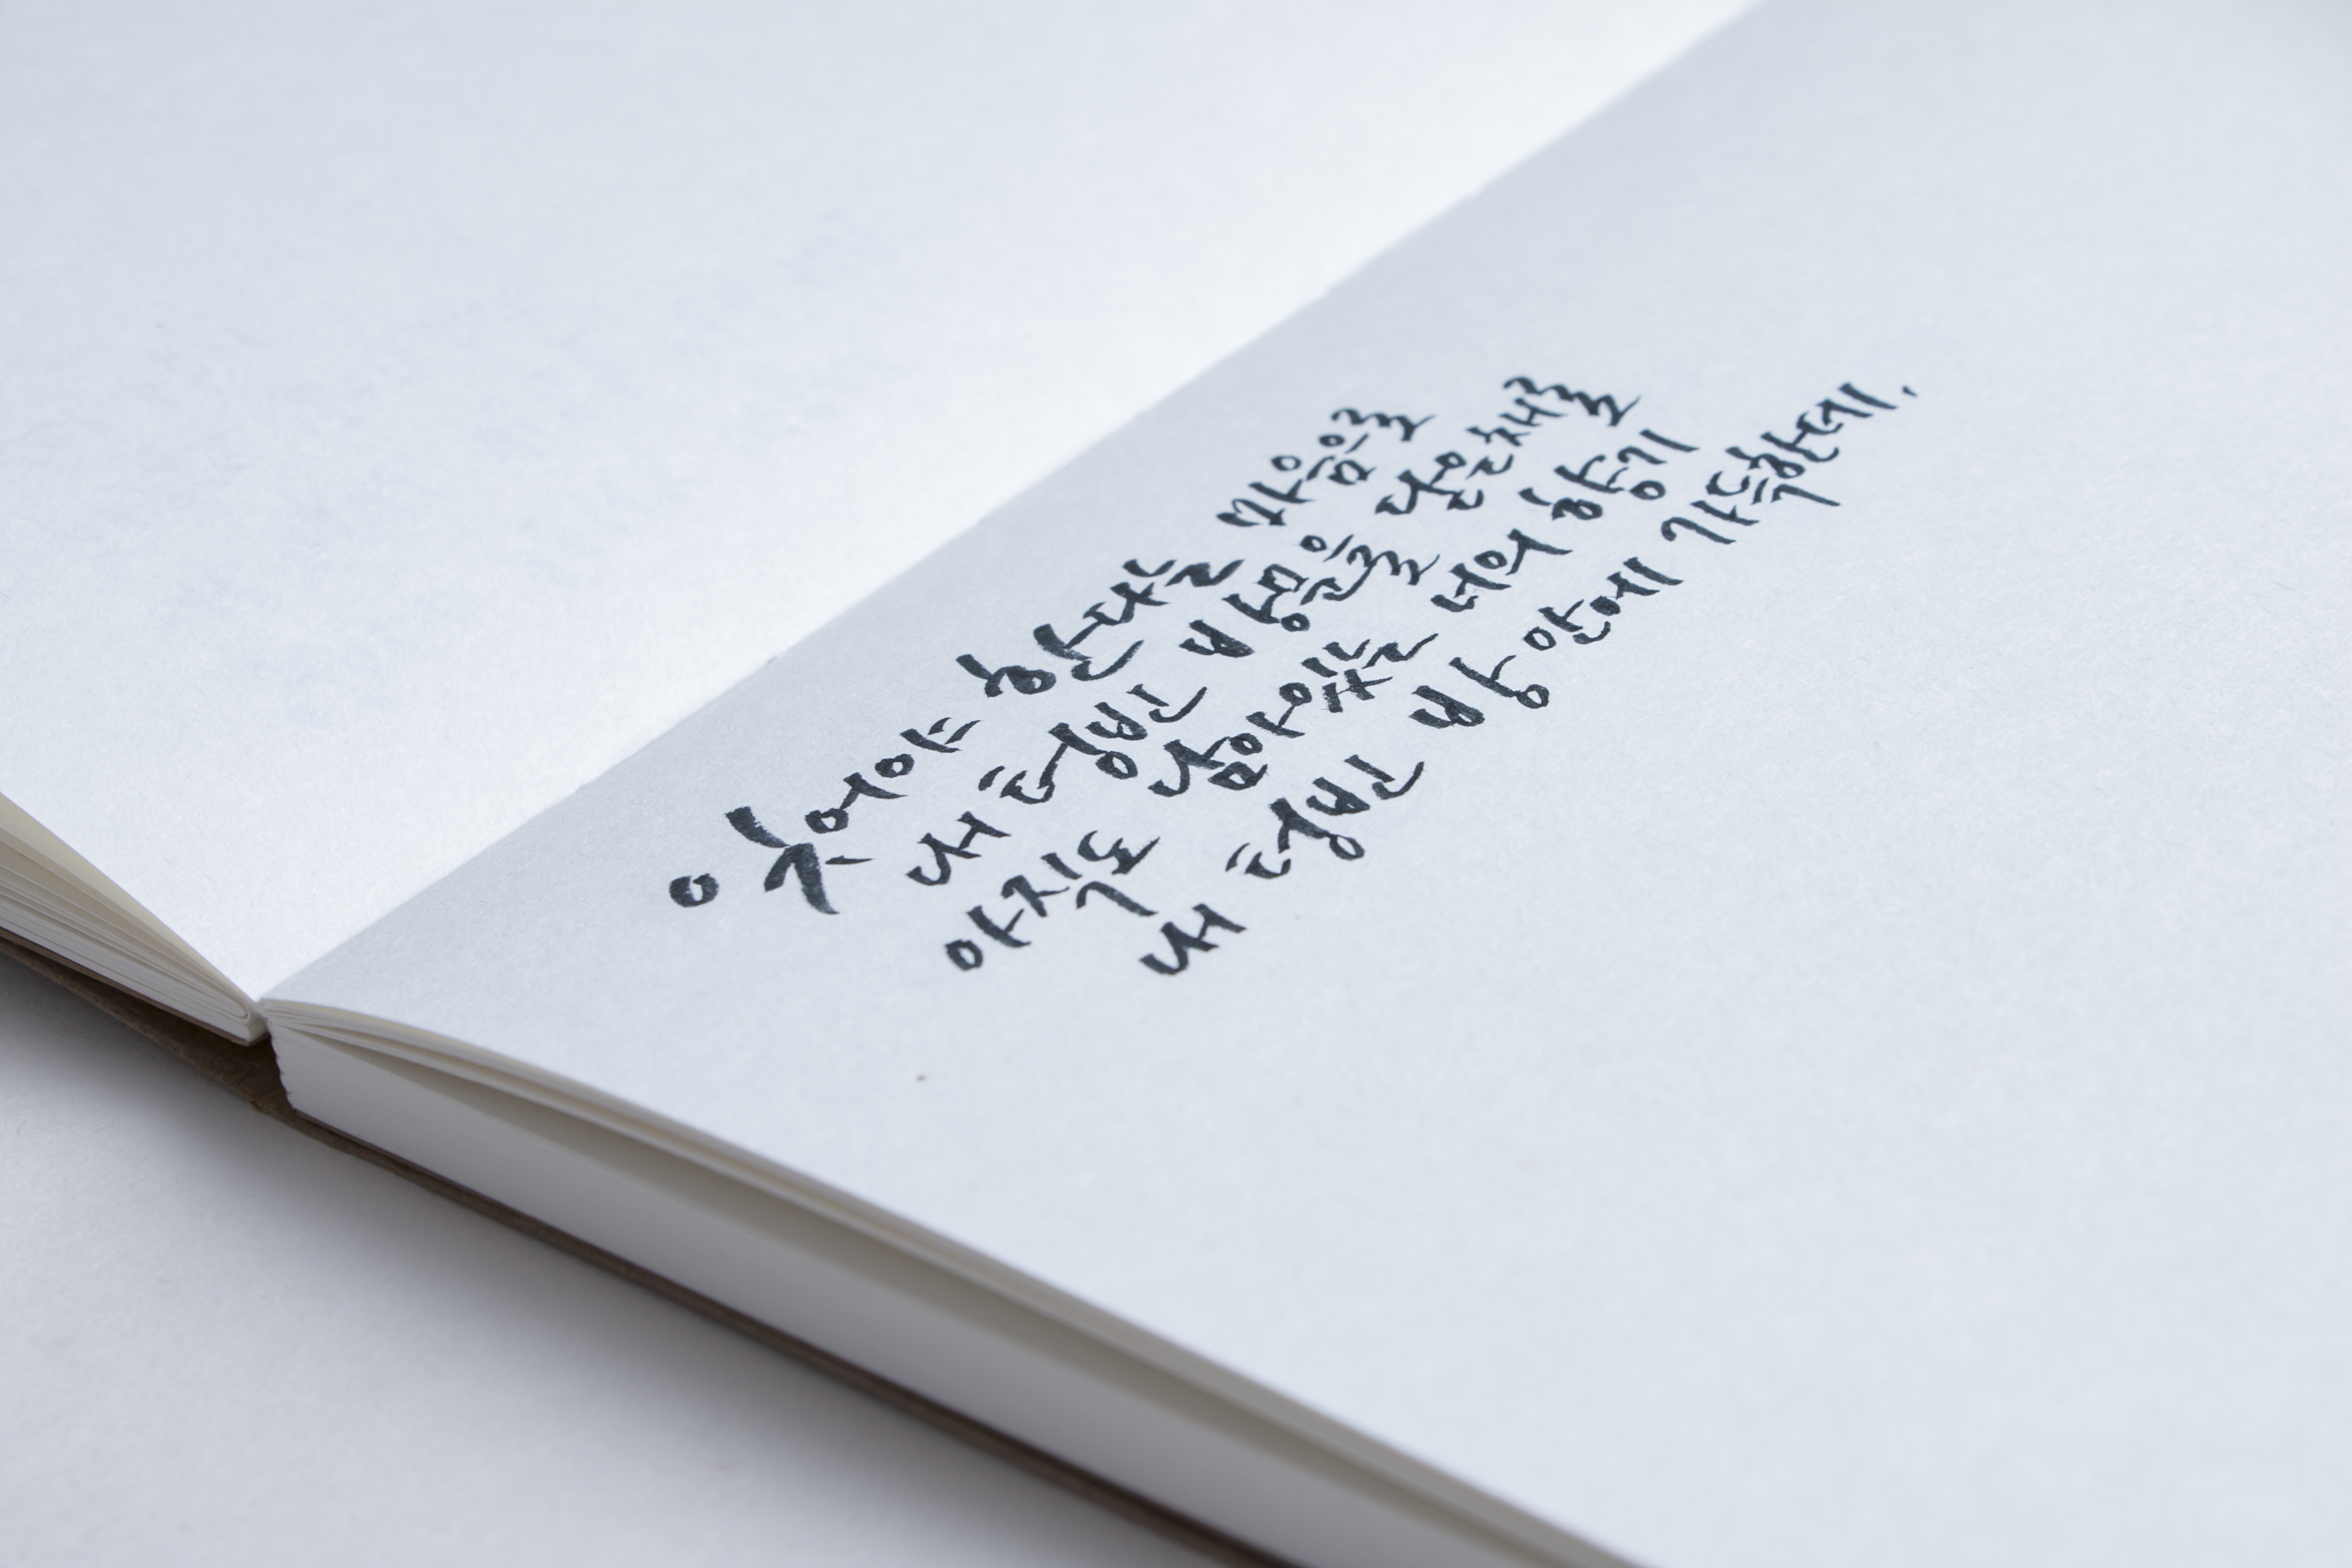 잊어야 한다는 마음으로
내 텅빈 방문을 닫은채로
아직도 남아있는 너의 향기
내 텅빈 방안에 가득한데.